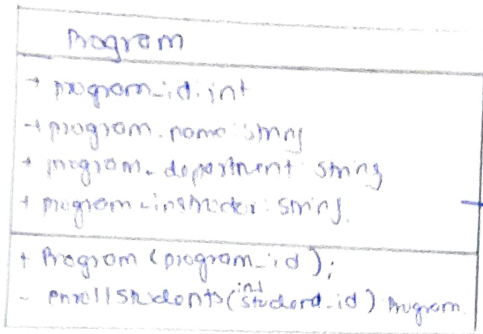 Program
+ program_id: int
+ program_name: string
+ program_department: string
+ program_instructor: string.
+ Program (program_id);
- enrollStudents(int student_id) Program